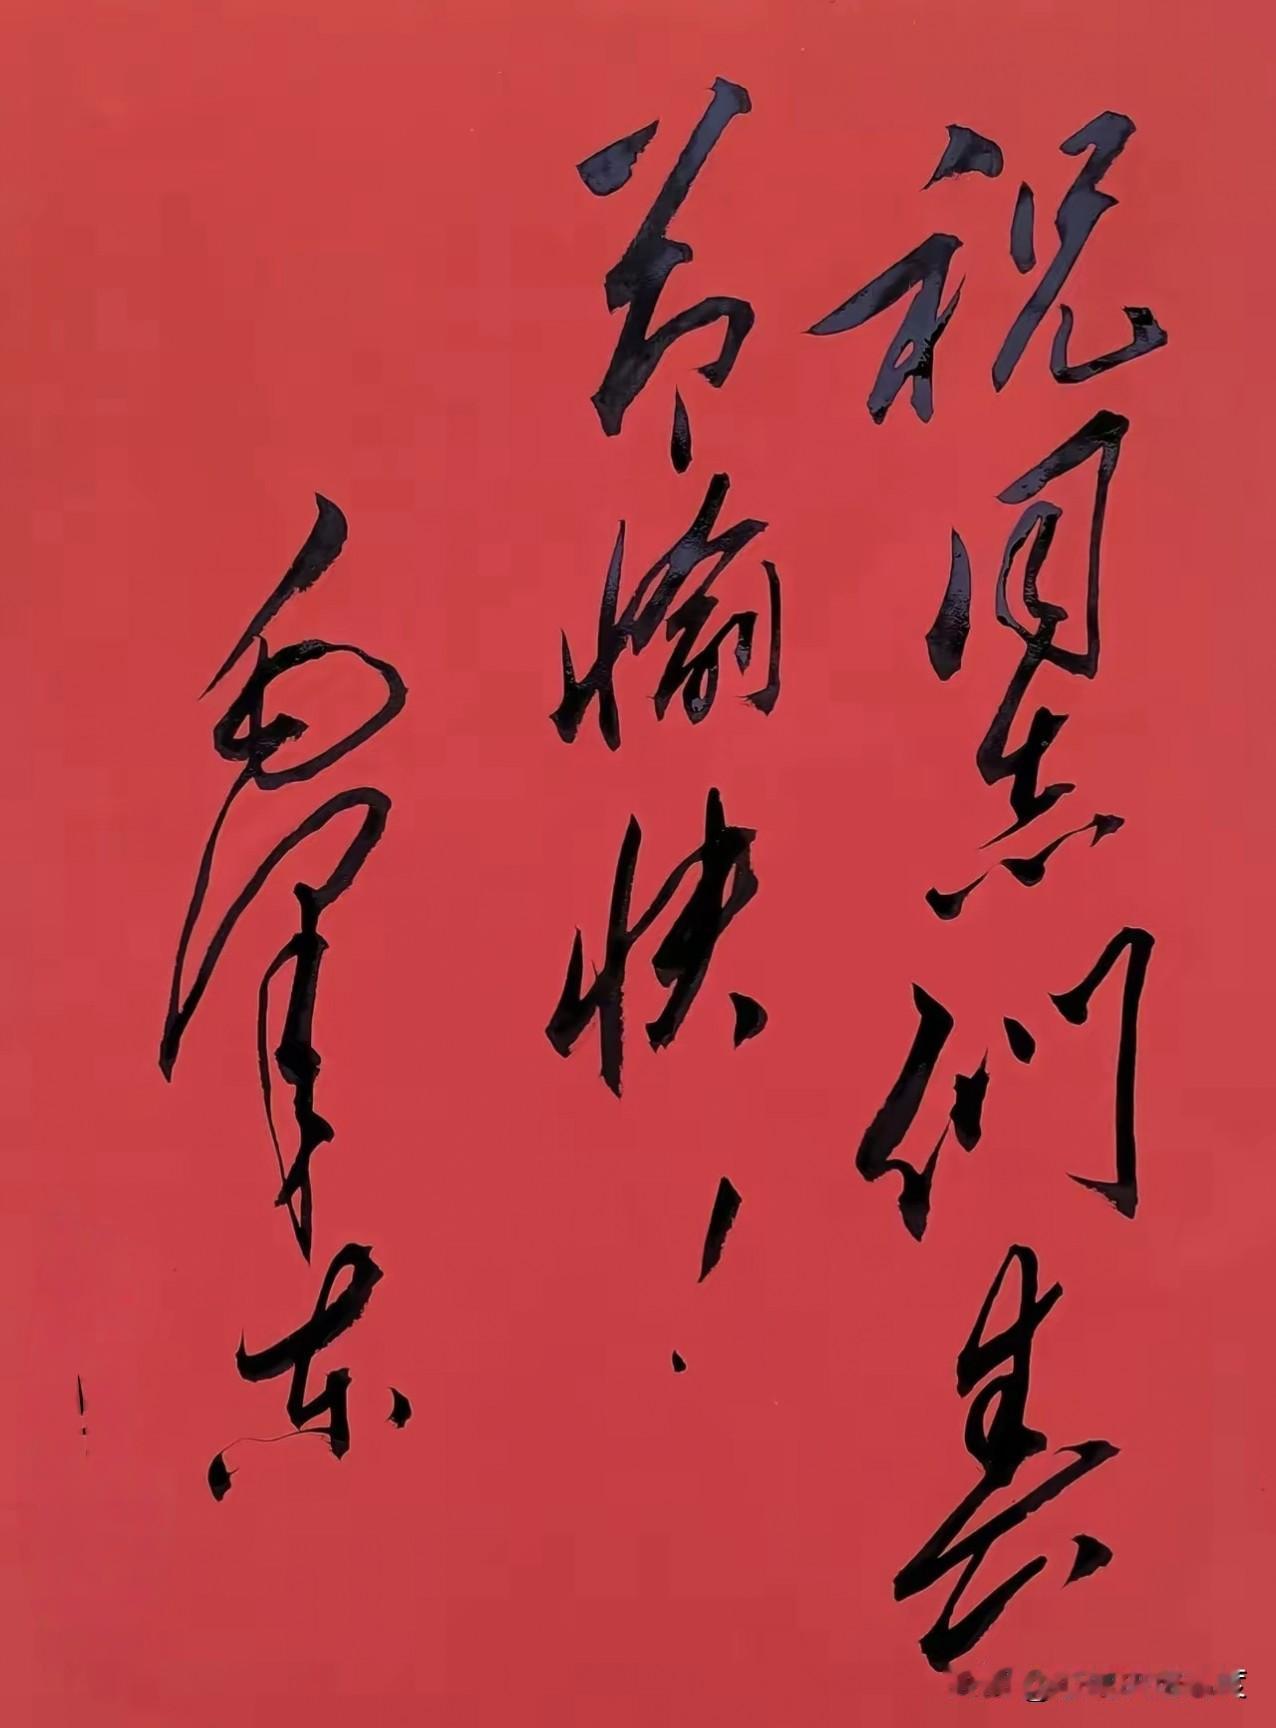 祝同志们春
节愉快！
毛泽东